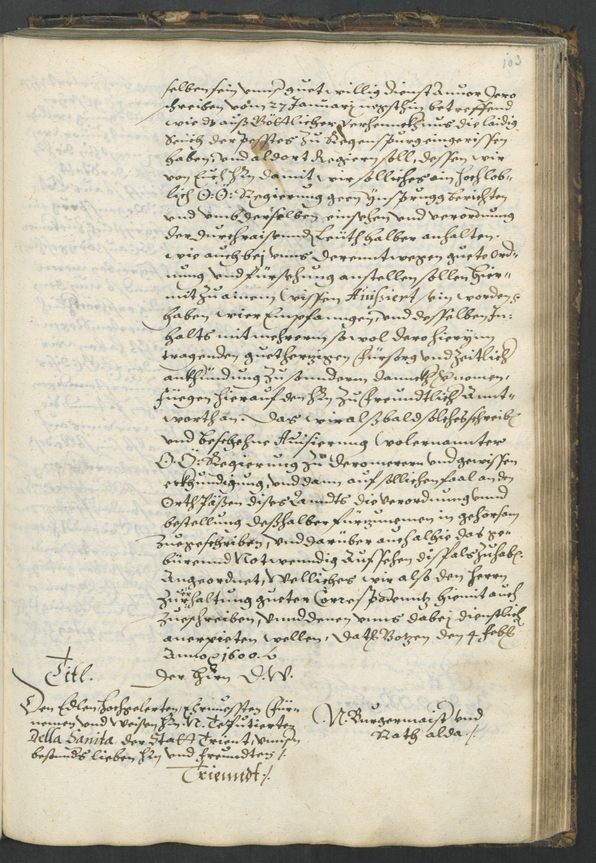 103
selben sein unns guet willig dienst anuor dero
schreiben vom 27 Januarj negsthin betreffend
wie dz auß Göttlicher verhencknus die laidig
seüch der Pesstes zu Regenspurg eingerissen
haben, und aldort Regiern soll, dessen wir
von Eüch hrn damit wir solliches ain hochlob-
lich O: Ö: Regierung geen Ynsprugg berichten
und umb derselben einsehen und verordnung
der durchraisennd Leüth halber anhalten.
wie auch bej unns derenntwegen guete ord-
nung und fürsehung anstellen sollen hier-
mit zu ainem wissen Auisiert sein worden,
haben wier Empfanngen, und desselben In-
halts mit mehrerm so wol dero hierynn
tragenden guetherzigen fürsorg und zeitlich
ankhündung zu sonderm dannckh vernomen,
fuegen hierauf den hrn zu freundtlich Annt-
wort an. Das wir alßbald solches schreib
und beschehne Auisierung wolernannter
O: Ö: Regierung zu deromerern und gewissen
erkhundigung, und dann auf sollichen faal an den
Orth Pässen dises Lanndts die verordnung unnd
bestellung deßhalber fürzunemen in gehorsam
zuegeschriben, und darüber auch alhie das ge-
bürennd Notwenndig Aufsehen dißfals zuhab
Angeordnet, Welliches wir also den herrn
zur haltung gueter Correspodenntz hiemit auch
zueschreiben, und denen unns dabej dienstlich
anerpieten wellen, Dat. Botzen den 4 Feb.
Anno 1600.
der hrn D.W.
Titl.
Den Edlen hochgelerten, Ernuessten Für-
nemen und Weisen hrn N. Deputierten
Della Sanita der Statt Triennt, unnsern
besonnds lieben hrn und freundten
Trienndt
N: Burgermaister und
Rath alda.